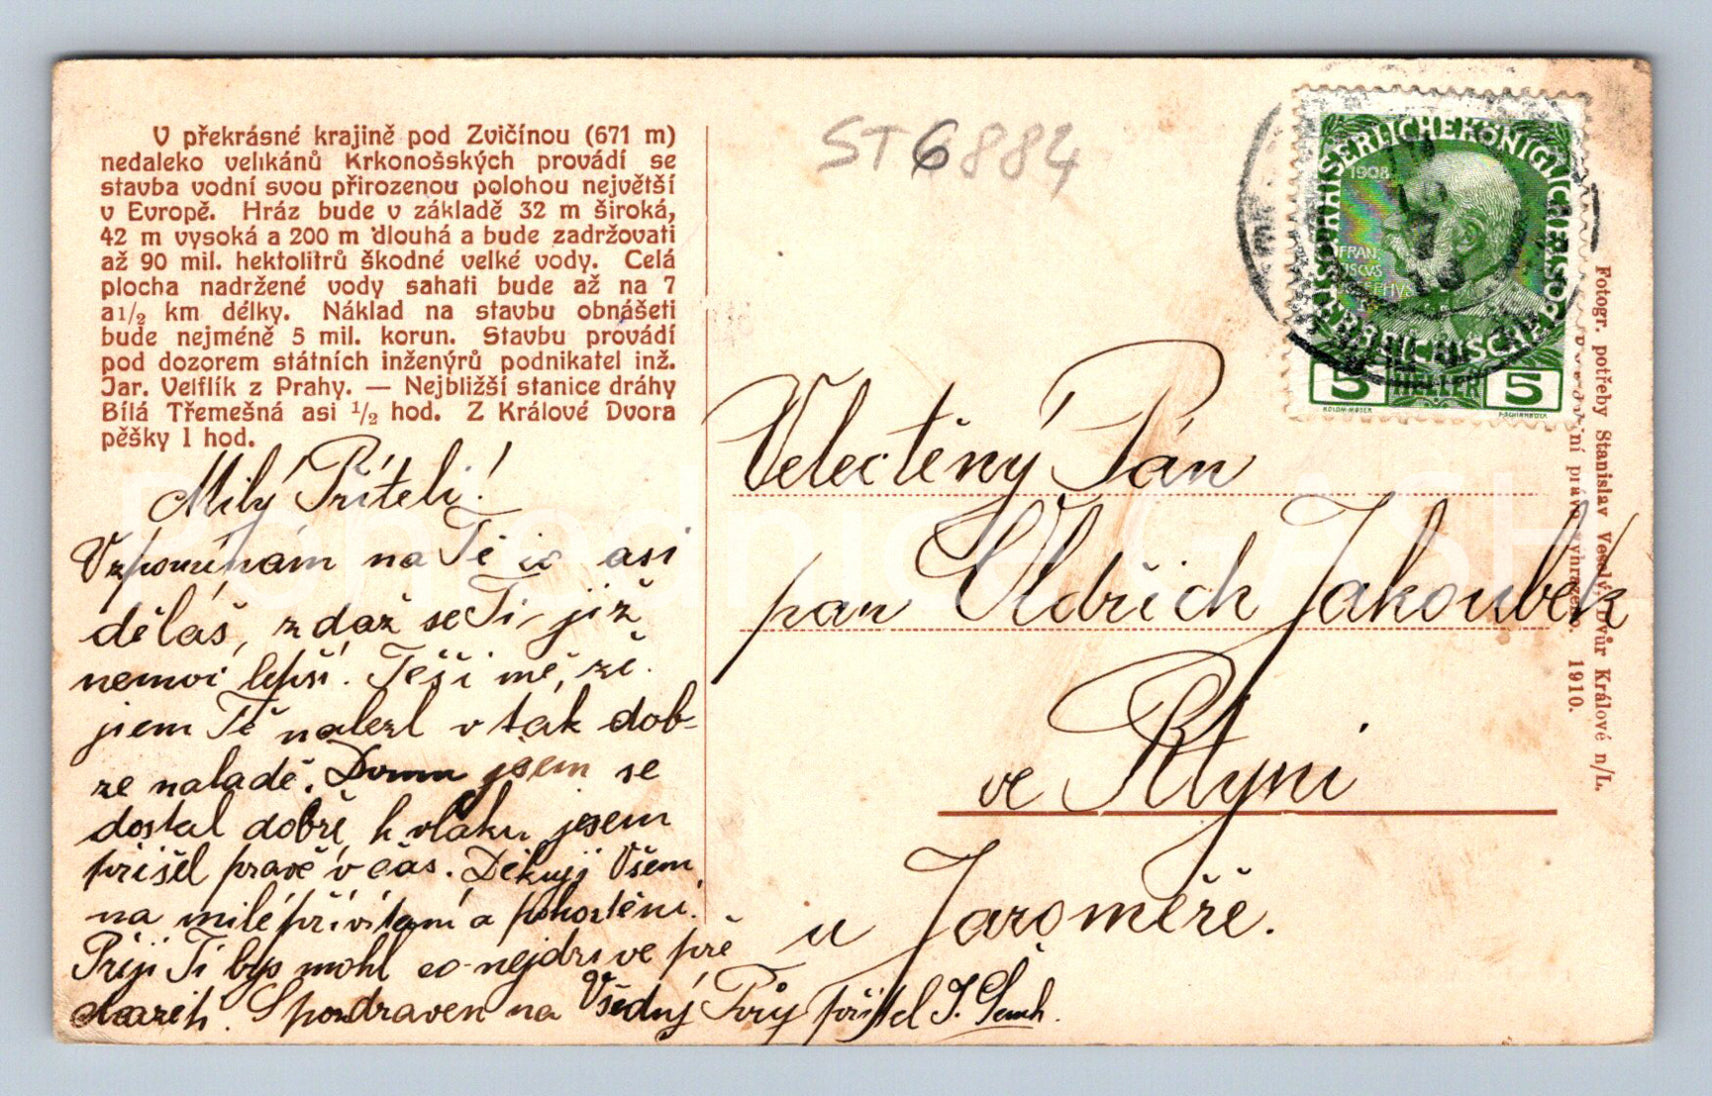 V překrásné krajině pod Zvičínou (671 m)
nedaleko velikánů Krkonošských provádí se
stavba vodní svou přirozenou polohou největší
v Evropě. Hráz bude v základě 32 m široká,
42 m vysoká a 200 m dlouhá a bude zadržovati
až 90 mil. hektolitrů škodné velké vody. Celá
plocha nadržené vody sahati bude až na 7
a 1/2 km délky. Náklad na stavbu obnášeti
bude nejméně 5 mil. korun. Stavbu provádí
pod dozorem státních inženýrů podnikatel inž.
Jar. Velflík z Prahy. — Nejbližší stanice dráhy
Bílá Třemešná asi 1/2 hod. Z Králové Dvora
pěšky 1 hod.
Milý Příteli!
Vzpomínám na Tě co asi
děláš, zdaž se Ti již
nemoc lepší. Těší mě, že
jsem Tě nalezl v tak dob-
ré naladě. Domu jsem se
dostal dobře, k vlaku jsem
přišel pravě v čas. Děkuji Všem
na milé přivítaní a pohoštění.
Přeji Ti bys mohl co nejdříve pře
S pozdraven na Všedný Tvůj přítel J.
ST6884
KAISERLICHE KÖNIGLICHE
1908
FRAN
CISCUS
JOSEPHUS
5 HELLER 5
KOLOM·MOSER
F·SCHIRNBÖCK
Velectěný Pán
pan Oldřich Jakoubek
ve Rtyni
u Jaroměře.
Fotogr. potřeby Stanislav Veselý, Dvůr Králové n/L.
Původní právo vyhrazeno. 1910.
Pohlednice GASH